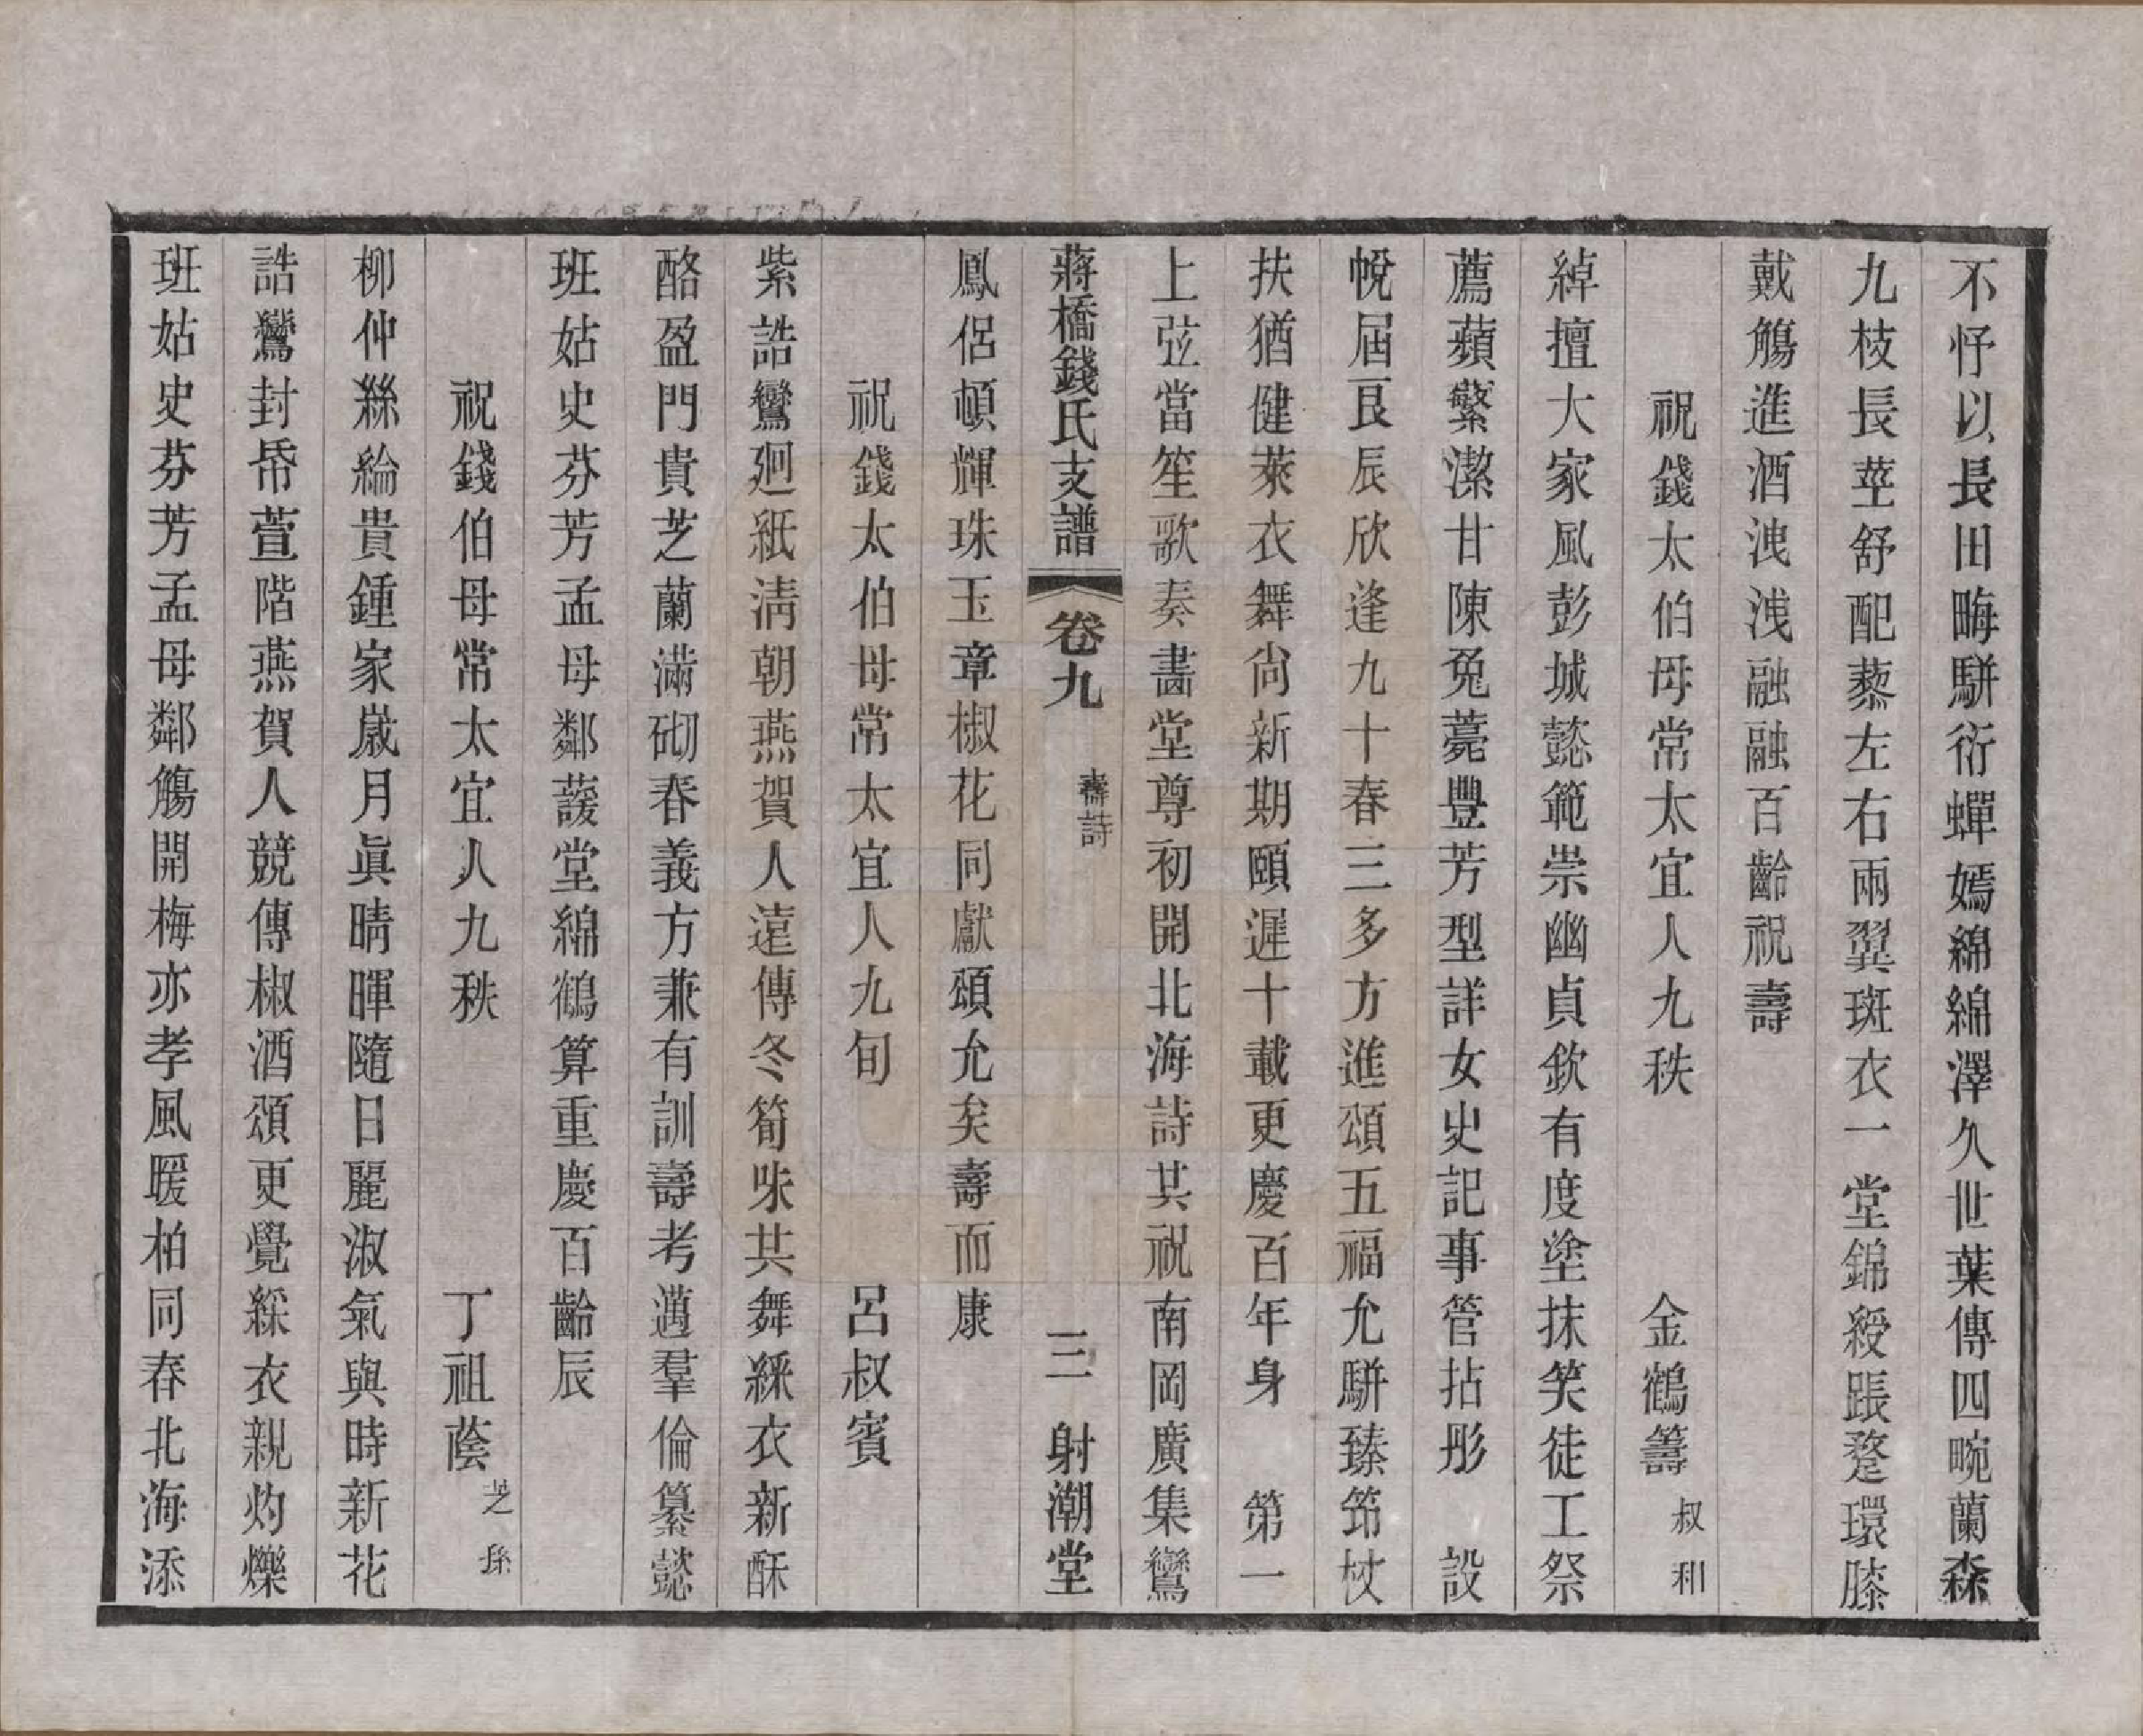 不忬以長田畮駢衍蟬嫣綿綿澤久世葉傳四畹蘭森
九枝長莖舒配藜左右兩翼斑衣一堂錦綬踞蹩環膝
戴觴進酒洩洩融融百齡祝壽
祝錢太伯母常太宜人九秩 金鶴籌 叔和
綽擅大家風彭城懿範崇幽貞欽有度塗抹笑徒工祭
薦蘋蘩潔甘陳兔薨豐芳型詳女史記事管拈彤 設
帨屆良辰欣逢九十春三多方進頌五福允駢臻笻杖
扶猶健萊衣舞尚新期頤遲十載更慶百年身 第一
上弦當笙歌奏畵堂尊初開北海詩其祝南岡廣集鸞
蔣橋錢氏支譜 卷九 壽詩 三 射潮堂
鳳侶頓輝珠玉章椒花同獻頌允矣壽而康
祝錢太伯母常太宜人九旬 呂叔賓
紫誥鸞廻紙淸朝燕賀人遠傳冬筍味共舞綵衣新酥
酪盈門貴芝蘭滿砌春義方兼有訓壽考邁羣倫纂懿
班姑史芬芳孟母鄰蘐堂綿鶴算重慶百齡辰
祝錢伯母常太宜人九秩 丁祖蔭 芝孫
柳仲絲綸貴鍾家歲月眞晴暉隨日麗淑氣與時新花
誥鸞封帋萱階燕賀人競傳椒酒頌更覺綵衣親灼爍
班姑史芬芳孟母鄰觴開梅亦孝風暖柏同春北海添